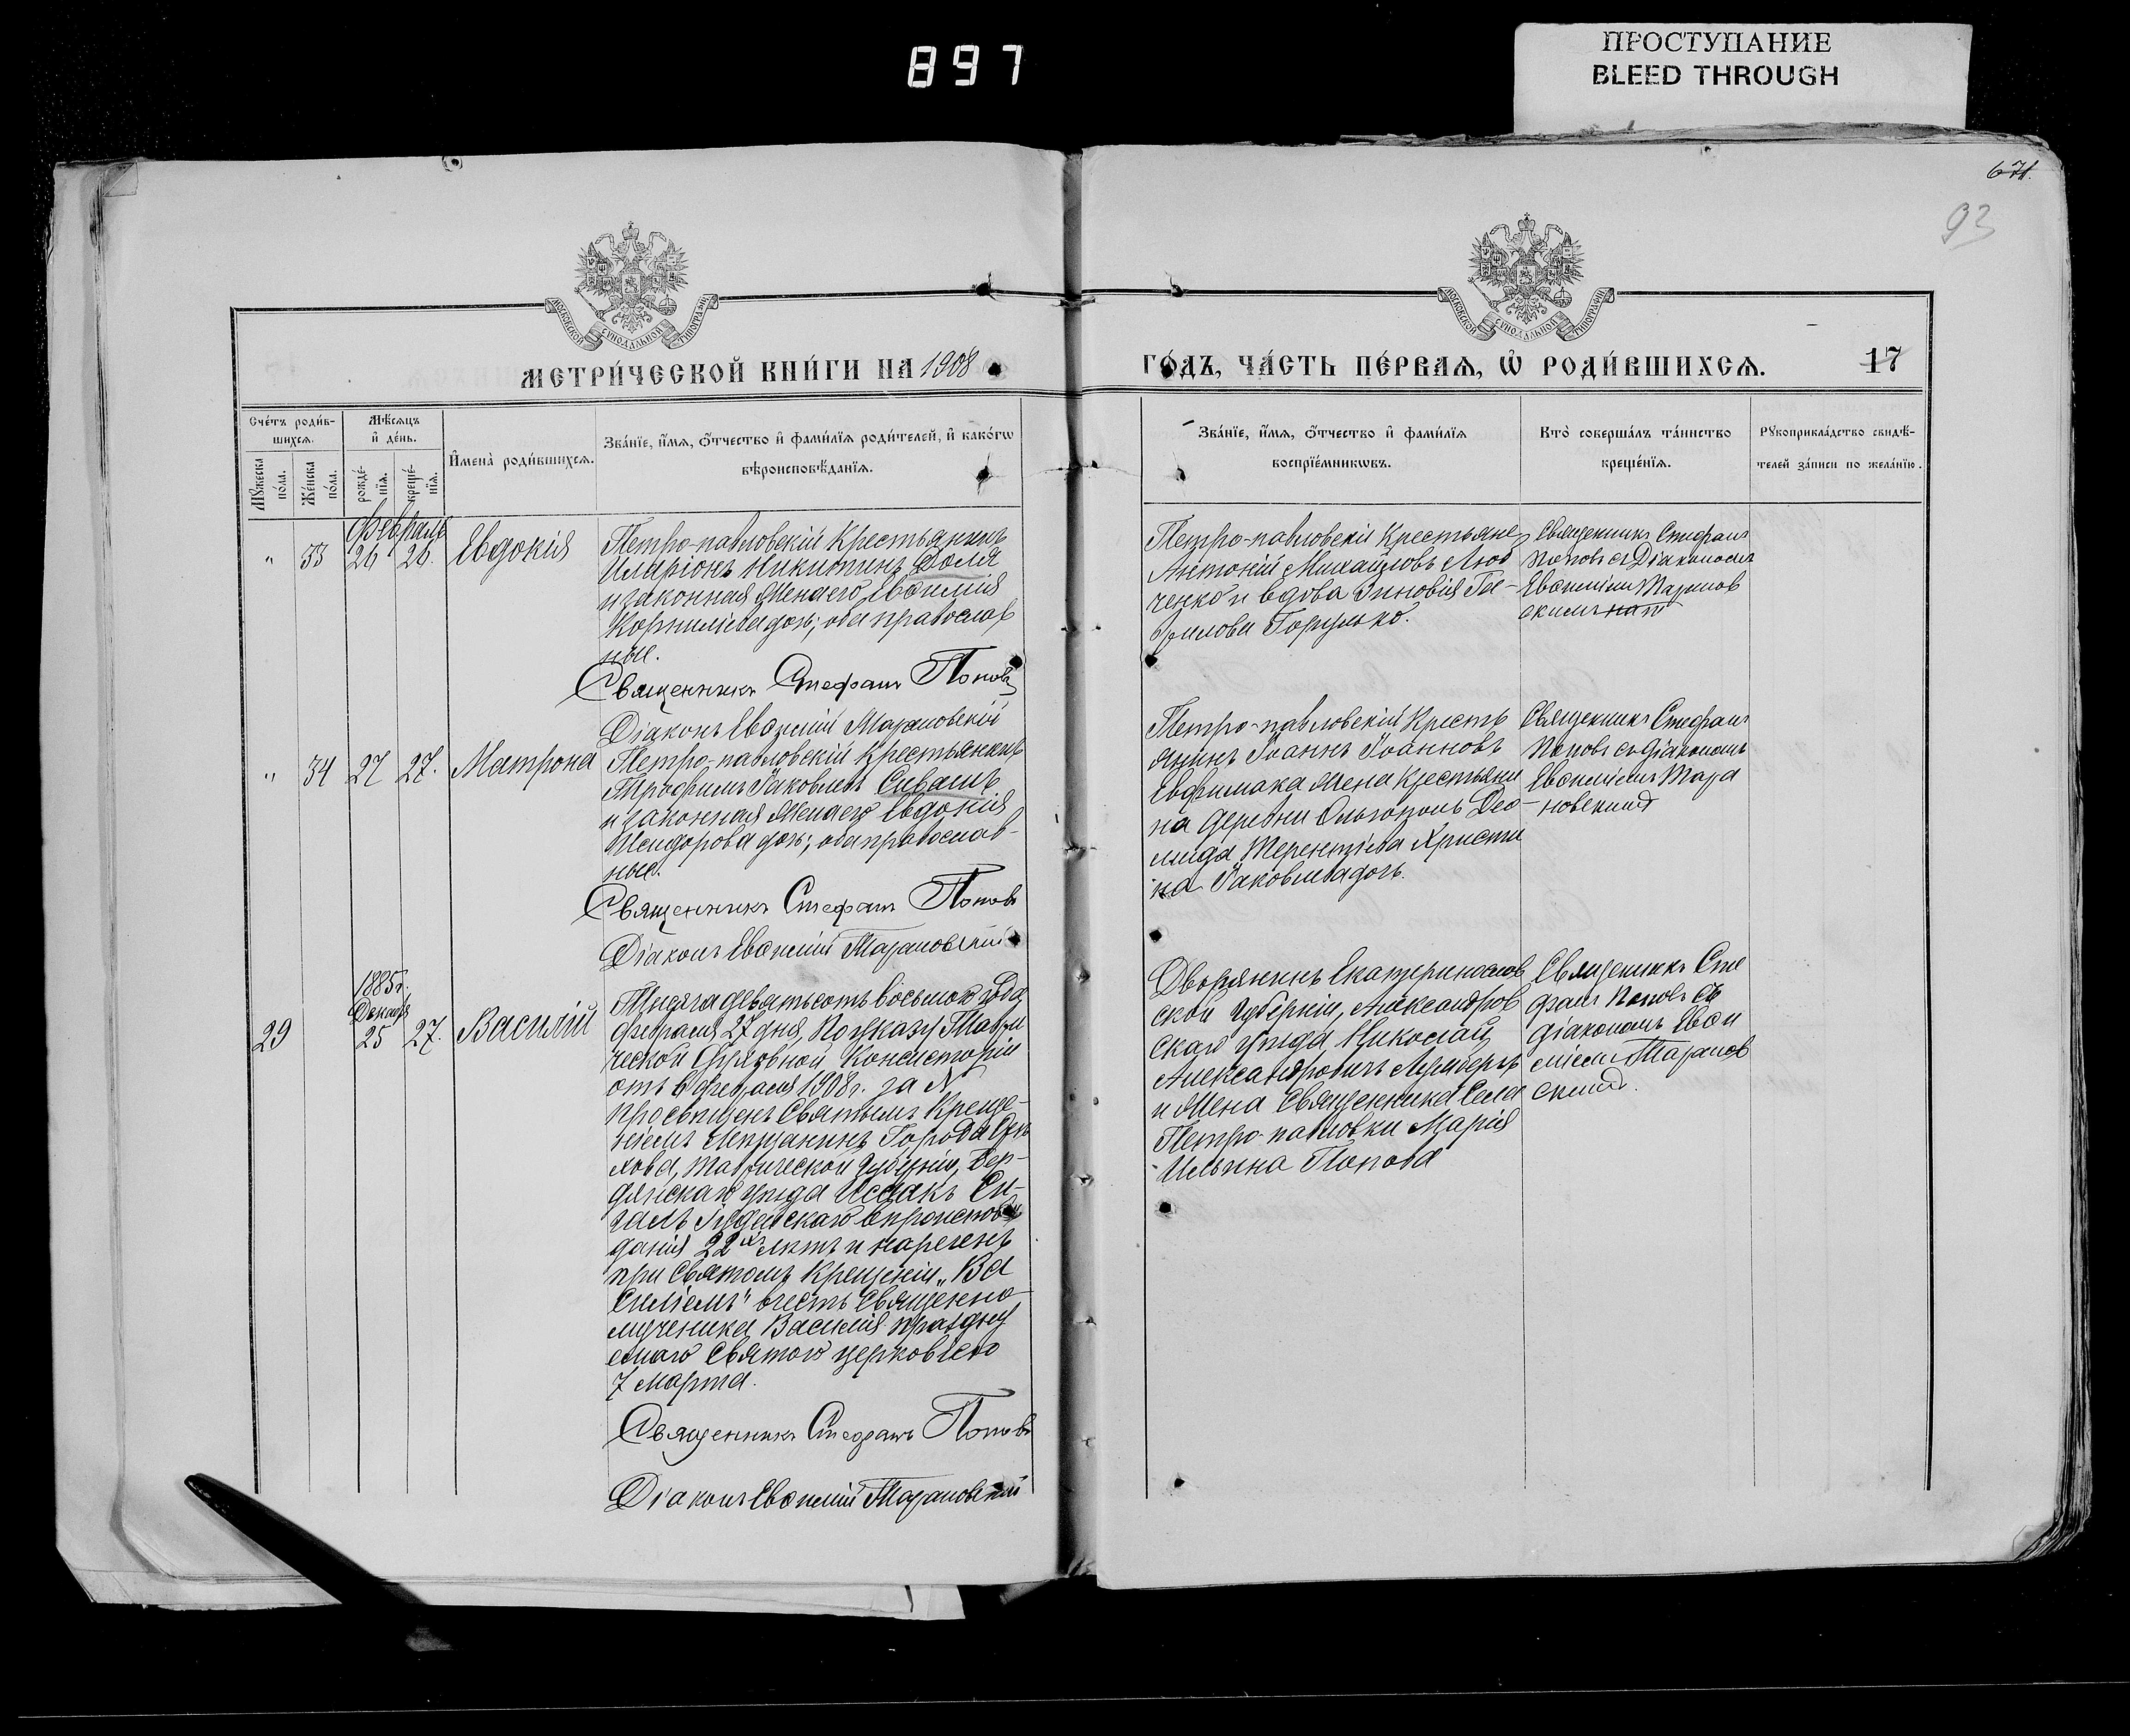 897
ПРОСТУПАНИЕ
BLEED THROUGH
671.
93
МОСКОВСКОЙ СѴНОДАЛЬНОЙ ТИПОГРАФІИ
МОСКОВСКОЙ СѴНОДАЛЬНОЙ ТИПОГРАФІИ
МЕТРИ́ЧЕСКОЙ КНИ́ГИ НА 1908
ГО́ДЪ, ЧА́СТЬ ПЕ́РВАЯ, Ѡ҆ РОДИ́ВШИХСЯ. 17
Сче́тъ роди́в-
шихся.
Мѣ́сяцъ
и҆ де́нь.
Му́жеска
по́ла.
Же́нска
по́ла.
рожде́-
нїя.
креще́-
нїя.
И҆мена̀ роди́вшихся.
Зва́нїе, и҆́мя, ѻ҆́тчество и҆ фами́лїя роди́телей, и҆ како́гѡ
вѣроисповѣ́данїя.
Зва́нїе, и҆́мя, ѻ҆́тчество и҆ фами́лїя
воспрїе́мникѡвъ.
Кто̀ соверша́лъ та́инство
креще́нїя.
Рꙋкоприкла́дство свидѣ́-
телей за́писи по жела́нїю.
Февраль
" 33 26 26. Евдокія
Петро-павловскій Крестьянинъ
Иларіонъ Никитинъ Доля
и законная жена его Евѳимія
Корниліева дочь; оба православ
ные.
Священникъ Стефанъ Поповъ
Діаконъ Евѳимій Тарановскій
Петро-павловскіи Крестьяне
Антоній Михайловъ Люб
ченко и вдова Зиновія Га-
врилова Горулько.
Священникъ Стефанъ
Поповъ съ Діакономъ
Евѳиміемъ Таранов
скимъ
" 34 27 27. Матрона
Петро-павловскій Крестьянинъ
Трофимъ Іаковлевъ Сивашъ
и законная жена его Евдокія
Исидорова дочь; оба православ-
ные.
Священникъ Стефанъ Поповъ
Діаконъ Евѳимій Тарановскій
Петро-павловскій Кресть
янинъ Іоаннъ Іоанновъ
Евфимака жена Крестьяни
на деревни Ольгополь Део-
мида Терентіева Христи
на Іаковлева дочь.
Священникъ Стефанъ
Поповъ съ діакономъ
Евѳиміемъ Тара
новскимъ
1885г.
Декабря
29 25 27. Василій
Тысяча девятьсотъ восьмого года,
февраля 27 дня, по указу Таври
ческой Духовной Консисторіи
отъ 6 февраля 1908 г. за №
просвѣщенъ Святымъ Креще-
ніемъ мѣщанинъ Города Орѣ
хова, Таврической Губерніи, Бер-
дянскаго уѣзда Исаакъ Си-
галъ Іудейскаго вѣроисповѣ
данія 22хъ лѣтъ и нареченъ
при Святомъ Крещеніи „Ва
силіемъ" въ честь Священно
мученика Василія празднуе
емаго Святою церковію
7 марта.
Священникъ Стефанъ Поповъ
Діаконъ Евѳимій Тарановскій
Дворянинъ Екатеринослав
ской Губерніи, Александров
скаго уѣзда Николай
Александровичъ
и жена Священника села
Петро-павловки Марія
Ильина Попова
Священникъ Сте
фанъ Поповъ съ
діакономъ Евѳи
міемъ Таранов
скимъ.